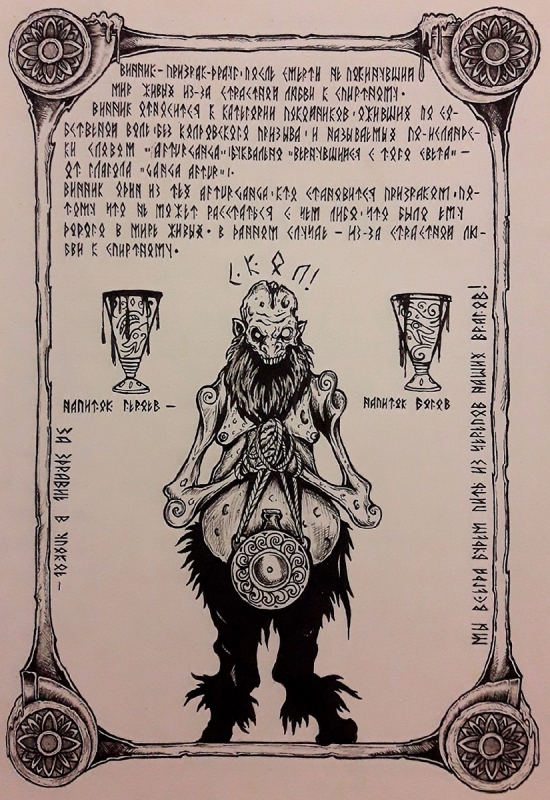 ВИННИК–ПРИЗРАК-ДРАУГ·ПОСЛЕ СМЕРТИ НЕ ПОКИНУВШИЙ
МИР ЖИВЫХ ИЗ-ЗА СТРАСТНОЙ ЛЮБВИ К СПИРТНОМУ·
ВИННИК ОТНОСИТСЯ К КАТЕГОРИИ ПОКОЙНИКОВ·ОЖИВШИХ ПО СО-
БСТВЕНОЙ ВОЛЕ·БЕЗ КОЛДОВСКОГО ПРИЗЫВА·И НАЗЫВАЕМЫХ ПО-ИСЛАНДС-
КИ СЛОВОМ "AFTURGANGA"(БУКВАЛЬНО "ВЕРНУВШИЙСЯ С ТОГО СВЕТА"–
ОТ ГЛАГОЛА "GANGA AFTUR")·
ВИННИК ОДИН ИЗ ТЕХ AFTURGANGA·КТО СТАНОВИТСЯ ПРИЗРАКОМ·ПО-
ТОМУ ЧТО НЕ МОЖЕТ РАССТАТЬСЯ С ЧЕМ ЛИБО·ЧТО БЫЛО ЕМУ
ДОРОГО В МИРЕ ЖИВЫХ· В ДАННОМ СЛУЧАЕ – ИЗ-ЗА СТРАСТНОЙ ЛЮ-
БВИ К СПИРТНОМУ·
СКОЛ!
НАПИТОК ГЕРОЕВ –
НАПИТОК БОГОВ
ЗА ЗДРАВИЕ В УПОКОЕ –
МЫ ВСЕГДА БУДЕМ ПИТЬ ИЗ ЧЕРЕПОВ НАШИХ ВРАГОВ!